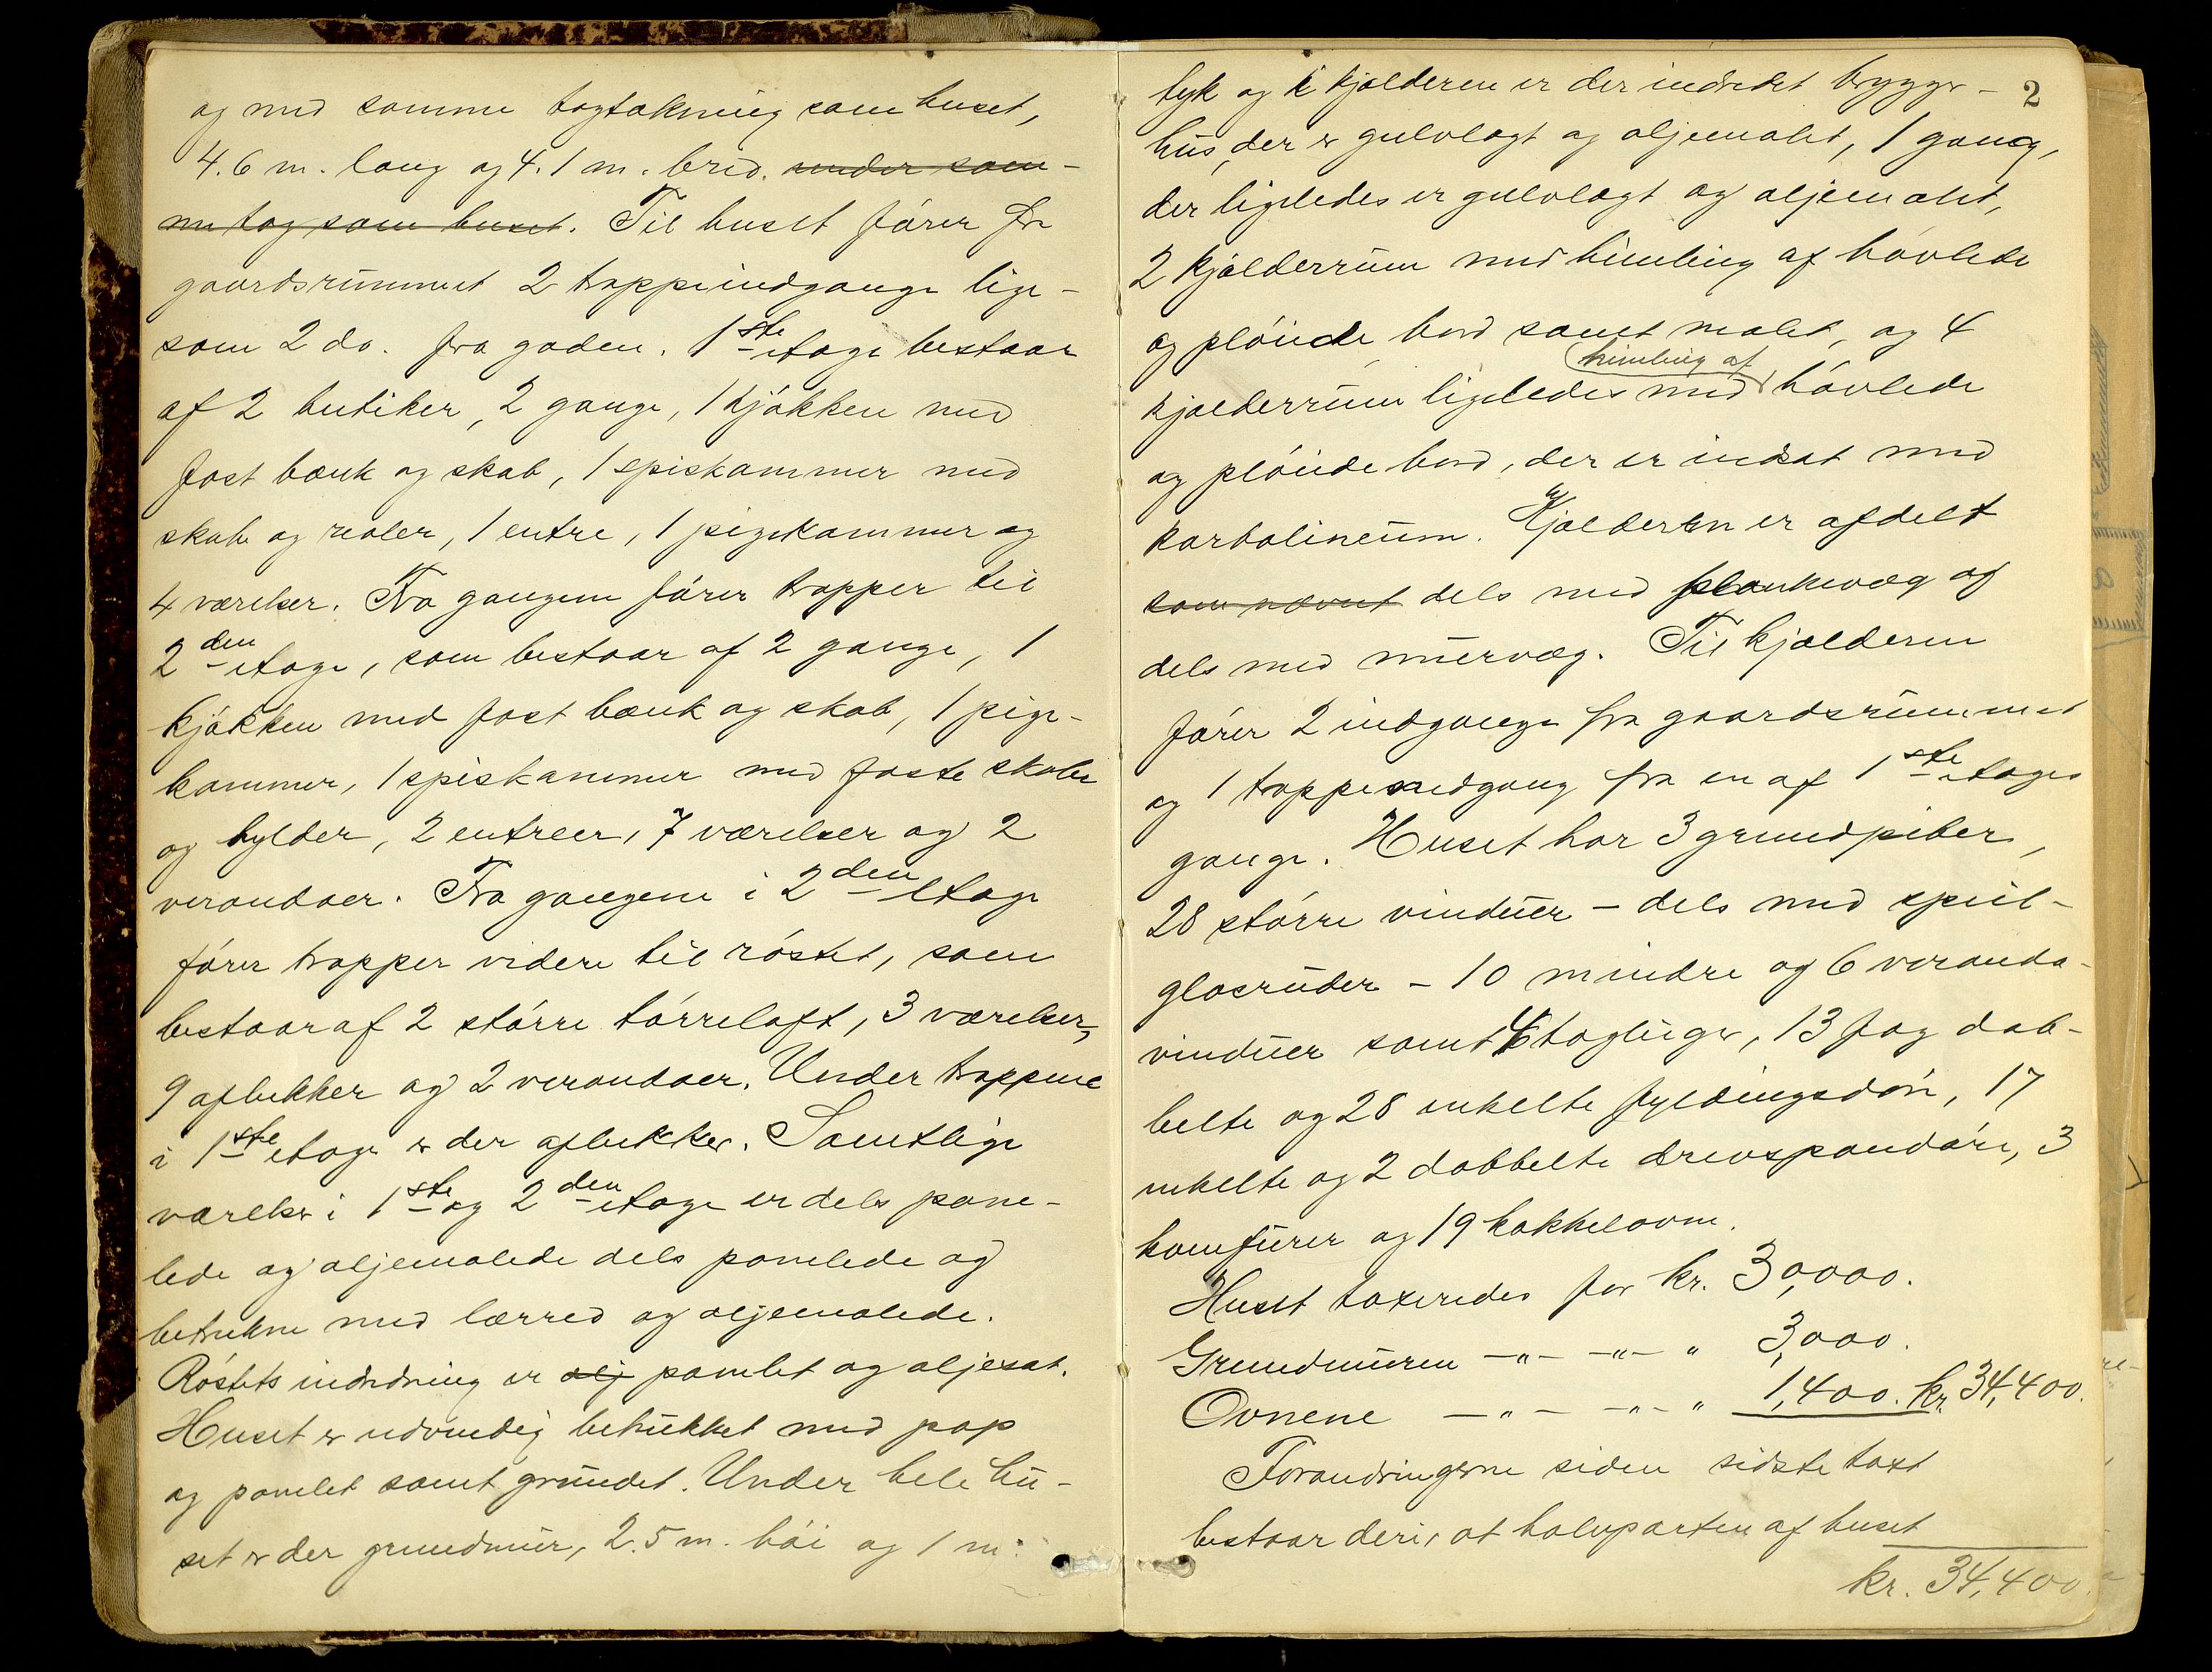 og med samme tagtækning som huset,
4.6 m. lang og 4.1 m. bred. under sam-
me tag som huset. Til huset fórer fra
gaardsrummet 2 trappeindgange lige-
som 2 do. fra gaden. 1ste etage bestaar
af 2 butiker, 2 gange, 1 kjókken med
fast bænk og skab, 1 spiskammer med
skab og reoler, 1 entre, 1 pigekammer og
4 værelser. Fra gangene fórer trapper til
2den etage, som bestaar af 2 gange, 1
kjókken med fast bænk og skab, 1 pige-
kammer, 1 spiskammer med faste skabe
og hylder, 2 entreer, 7 værelser og 2
verandaer. Fra gangene i 2den etage
fórer trapper videre til róstet, som
bestaar af 2 stórre tórreloft, 3 værelser,
9 aflukker og 2 verandaer. Under trappene
i 1ste etage er der aflukker. Samtlige
værelser i 1ste og 2den etage er dels pane-
lede og oljemalede dels panelede og
betrukne med lærred og oljemalede.
Róstets indredning er olj panelet og oljesat.
Huset er udvendig betrukket med pap
og panelet samt grundet. Under hele hu-
set er der grundmur, 2.5 m. hói og 1 m.
2
tyk og i kjælderen er der indredet brygger-
hus, der er gulvlagt og oljemalet, 1 gang,
der ligeledes er gulvlagt og oljemalet,
2 kjælderrum med himling af hóvlede
og plóiede bord samt malet, og 4
himling af
kjælderrum ligeledes med hóvlede
og plóiede bord, der er indsat med
karbolineum. Kjælderen er afdelt
som nævnt dels med plankevæg og
dels med murvæg. Til kjælderen
fórer 2 indgange fra gaardsrummet
og 1 trappenedgang fra en af 1ste etages
gange. Huset har 3 grundpiber,
28 stórre vinduer – dels med speil-
glasruder – 10 mindre og 6 veranda-
vinduer samt 4 tagluger, 13 fag dob-
belte og 28 enkelte fyldingsdóre, 17
enkelte og 2 dobbelte drevspandóre, 3
komfurer og 19 kakkelovne.
Huset taxeredes for kr. 30,000.
Grundmuren –"– –"– " 3,000.
Ovnene –"– –"– " 1,400. kr. 34,400.
Forandringerne siden sidste taxt
bestaar deri, at halvparten af huset
kr. 34,400.